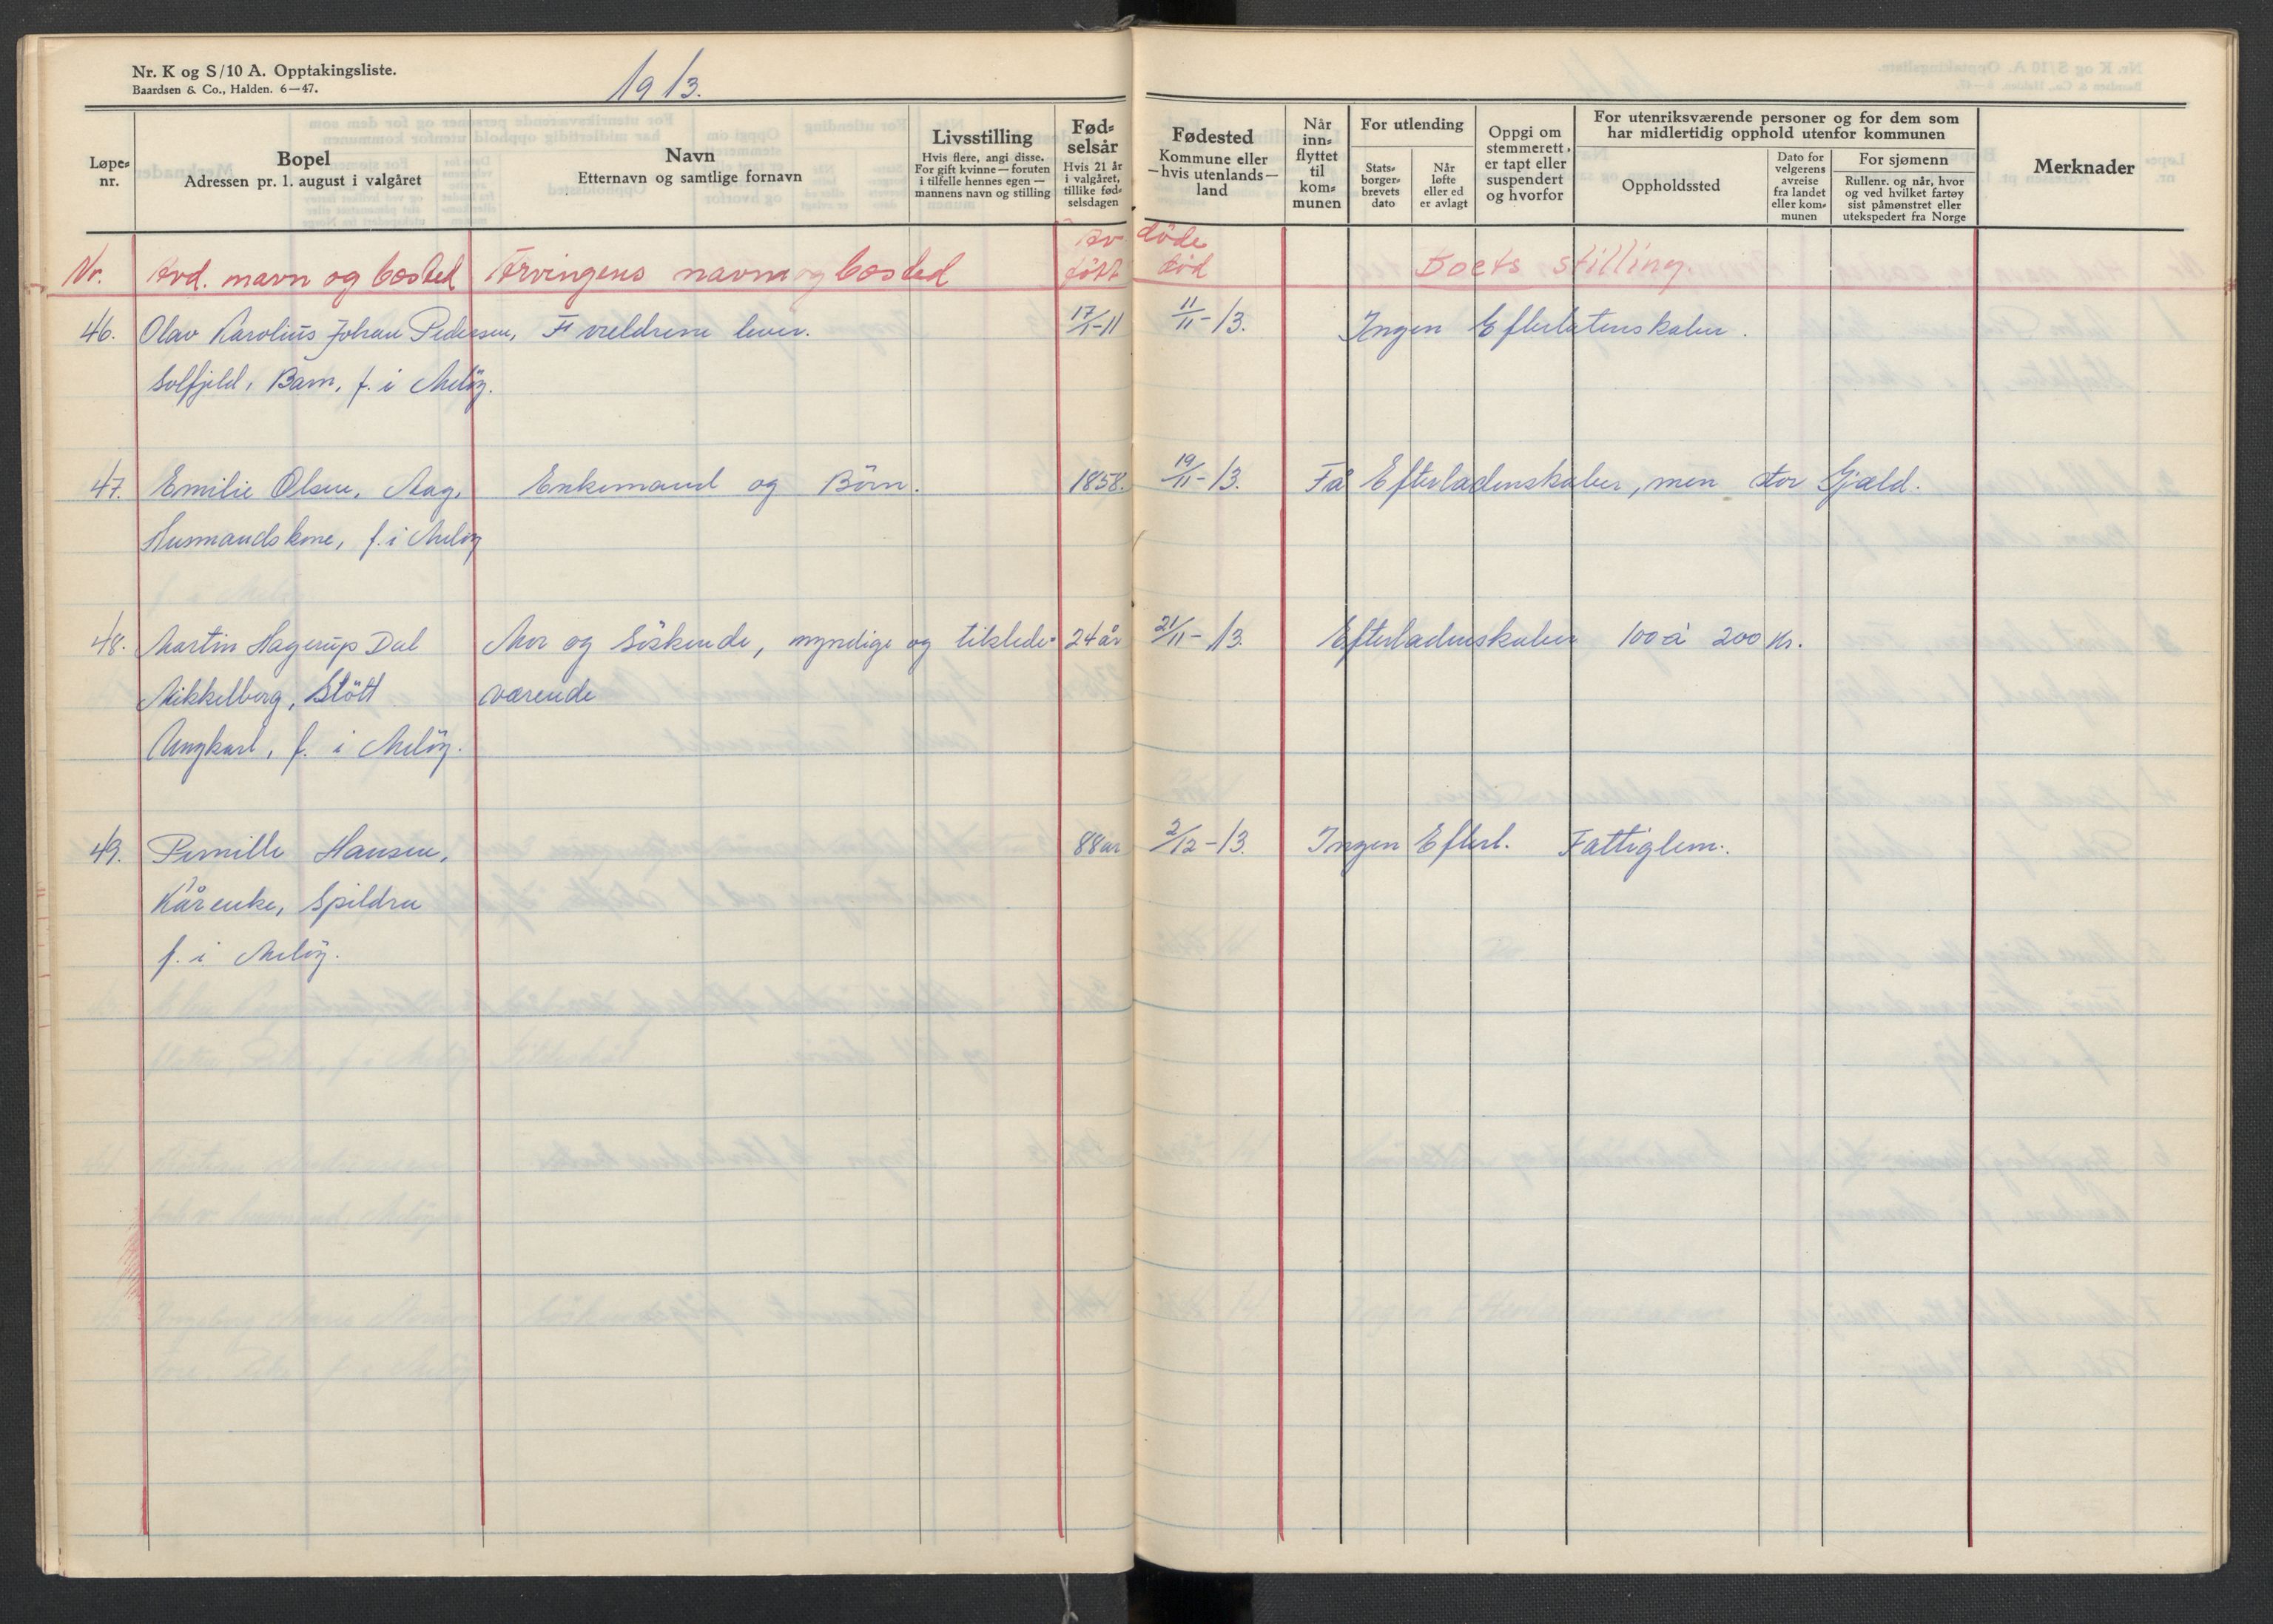 Nr. K og S/10 A. Opptakingsliste.
Baardsen & Co., Halden. 6—47.
1913.
Løpe-
nr.
Bopel
Adressen pr. 1. august i valgåret
Navn
Etternavn og samtlige fornavn
Livsstilling
Hvis flere, angi disse.
For gift kvinne — foruten
i tilfelle hennes egen —
mannens navn og stilling
Fød-
selsår
Hvis 21 år
i valgåret,
tillike fød-
selsdagen
Fødested
Kommune eller
— hvis utenlands —
land
Når
inn-
flyttet
til
kom-
munen
For utlending
Stats-
borger-
brevets
dato
Når
løfte
eller ed
er avlagt
Oppgi om
stemmerett
er tapt eller
suspendert
og hvorfor
For utenriksværende personer og for dem som
har midlertidig opphold utenfor kommunen
Oppholdssted
Dato for
velgerens
avreise
fra landet
eller kom-
munen
For sjømenn
Rullenr. og når, hvor
og ved hvilket fartøy
sist påmønstret eller
utekspedert fra Norge
Merknader
Av døde
Nr. Avd. navn og bosted Arvingens navn og bosted født død Boets stilling.
46. Olav Karolius Johan Pedersen, Foreldrene lever. 17/1-11 11/11-13. Ingen Efterlatenskaber.
Solfjeld, Barn, f. i Meløy.
47. Emilie Olsen, Aag, Enkemand og Børn. 1858. 19/11-13. Få Efterladenskaber, men stor Gjæld.
Husmandskone, f. i Meløy
48. Martin Hagerup Dal Mor og Söskende, myndige og tilstede- 24 år 21/11-13. Efterladenskaber 100 à 200 Kr.
Mikkelborg, Stött værende
Ungkarl, f. i Meløy.
49. Pernille Hansen, 88 år 2/12-13. Ingen Efterl. Fattiglem.
Kårenke, Spildra
f. i Meløy.